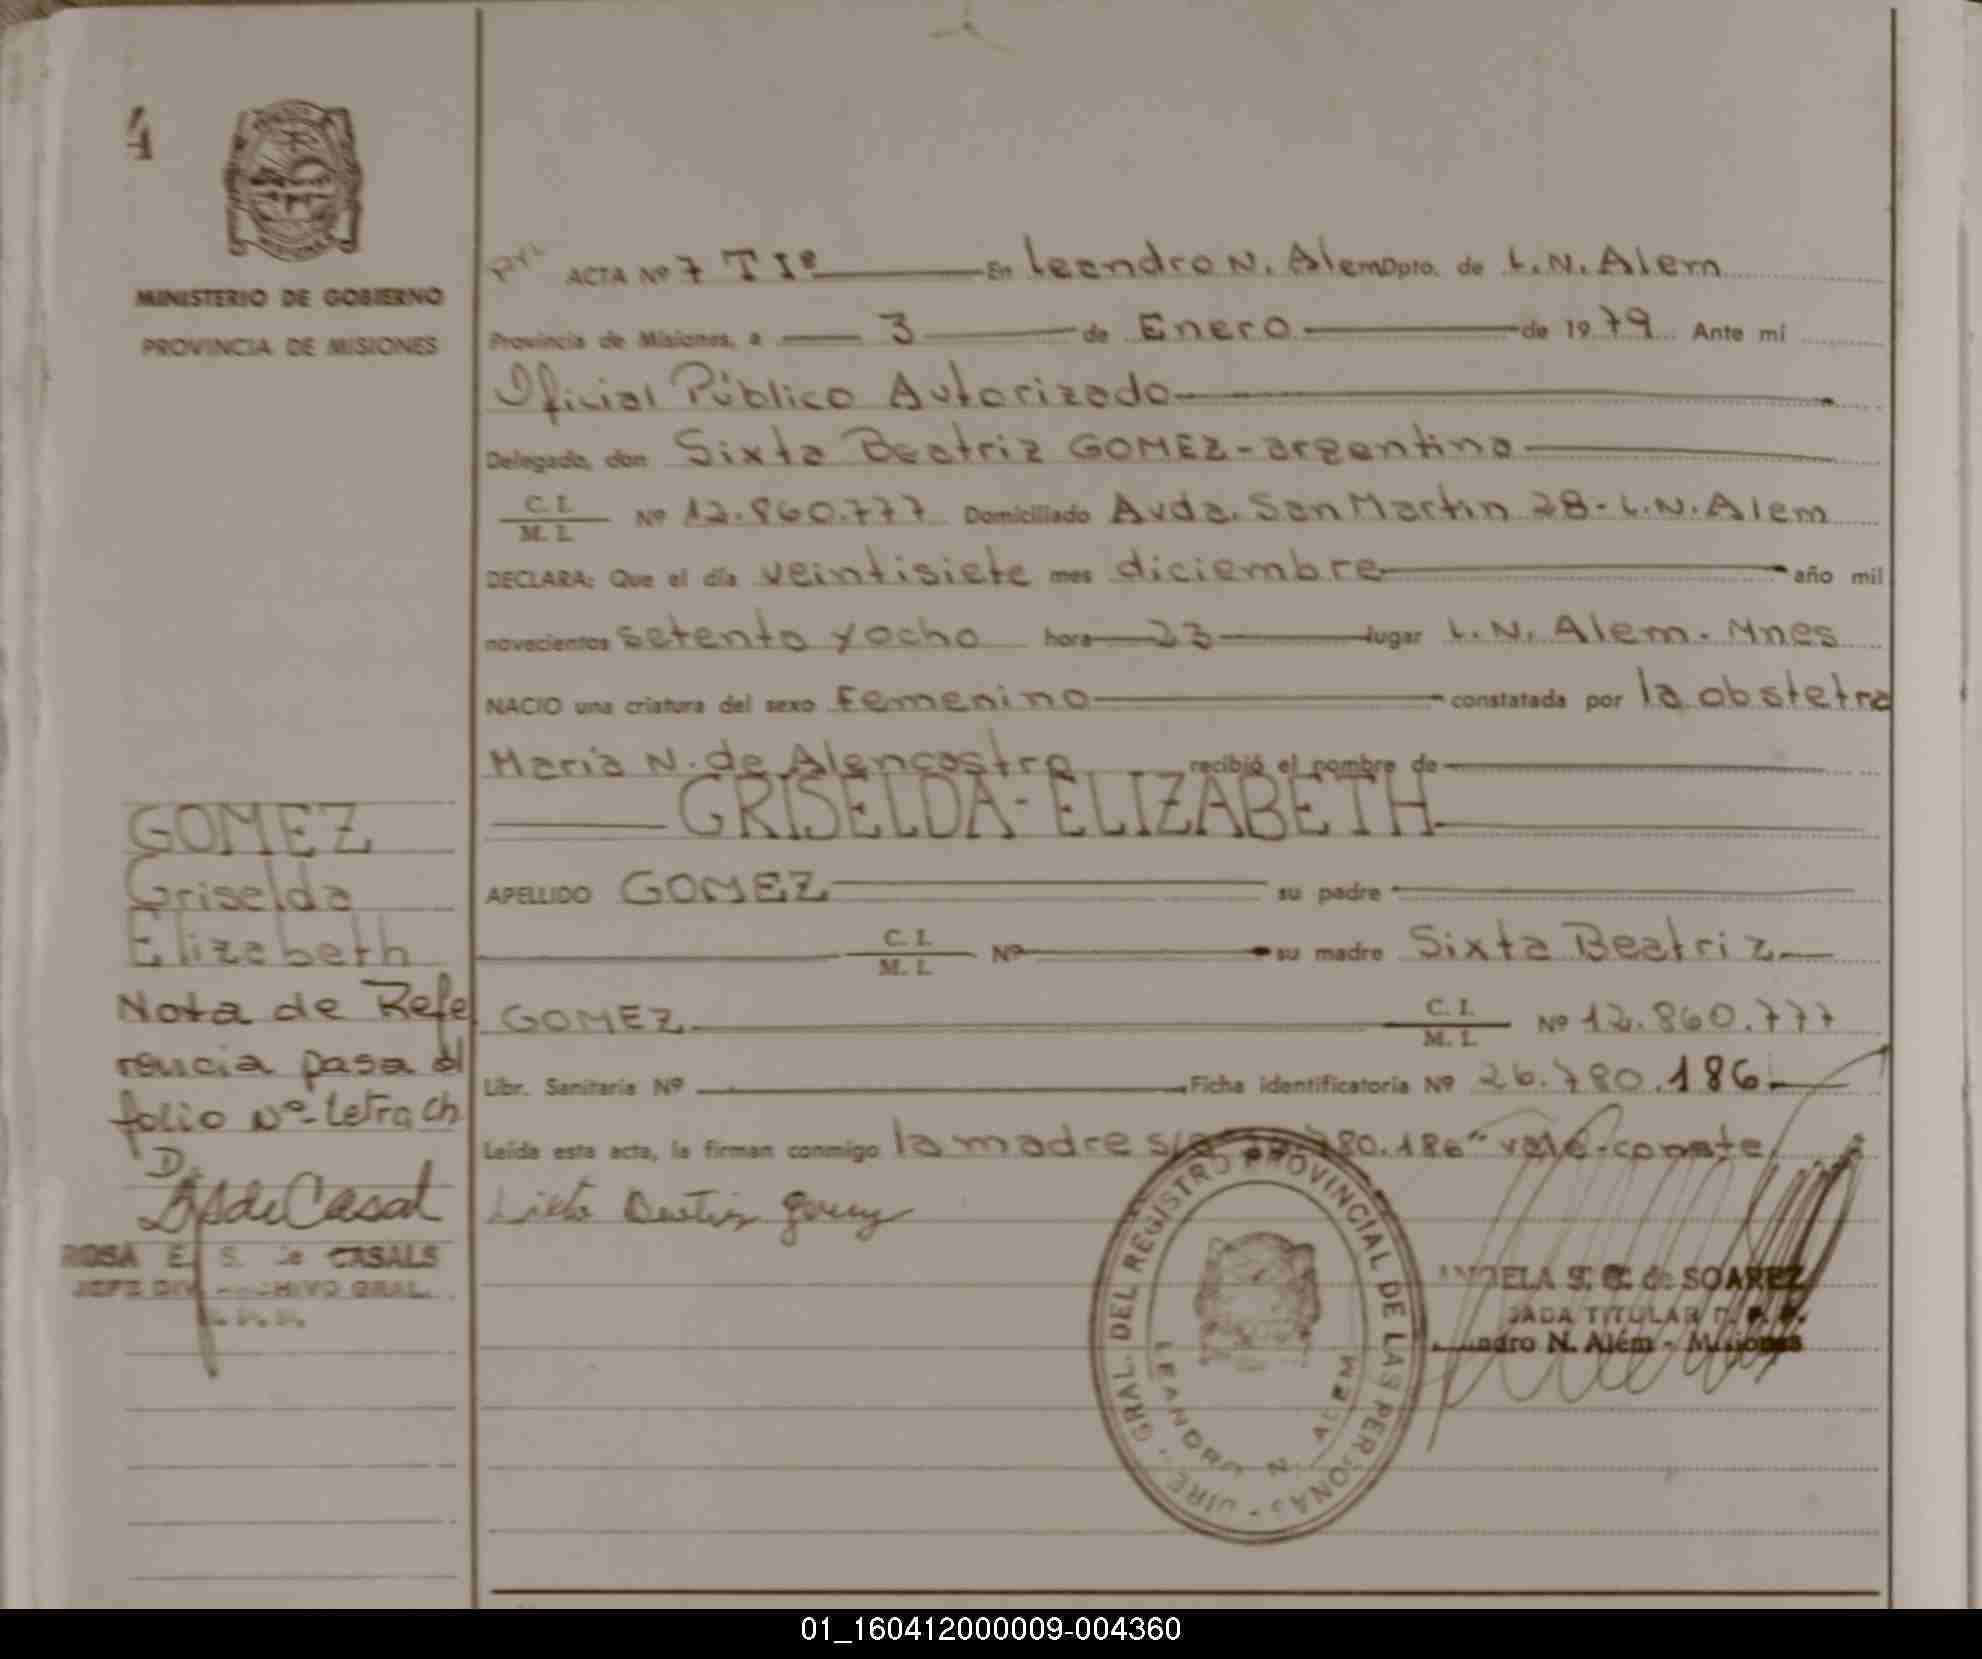 4
MINISTERIO DE GOBIERNO
PROVINCIA DE MISIONES
ACTA Nº 7 T Iº En Leandro N. Alem Dpto. de L.N. Alem
Provincia de Misiones, a 3 de Enero de 1979 Ante mí
Oficial Público Autorizado
Delegado, don Sixta Beatriz GOMEZ - argentina
C. I.
M. I. Nº 12.860.777 Domiciliado Avda. San Martin 28 - L.N. Alem
DECLARA: Que el día veintisiete mes diciembre año mil
novecientos setenta y ocho hora 23 lugar L.N. Alem - Mnes
NACIO una criatura del sexo Femenino constatada por la obstetra
María N. de Alencastro recibió el nombre de
GRISELDA - ELIZABETH
APELLIDO GOMEZ su padre
C. I.
M. I. Nº su madre Sixta Beatriz
GOMEZ C. I.
M. I. Nº 12.860.777
Libr. Sanitaria Nº Ficha identificatoria Nº 26.780.186
Leída esta acta, la firman conmigo la madre 780.186" vale - conste
GOMEZ
Griselda
Elizabeth
Nota de Refe
rencia pasa al
folio Nº - Letra Ch
D.
de Casal
ROSA E. S. de CASALS
JEFE DIV. ARCHIVO GRAL.
GRAL. DEL REGISTRO PROVINCIAL DE LAS PERSONAS
LEANDRO N. ALEM
S. C. de SOAREZ
TITULAR
N. Além - Misiones
01_160412000009-004360